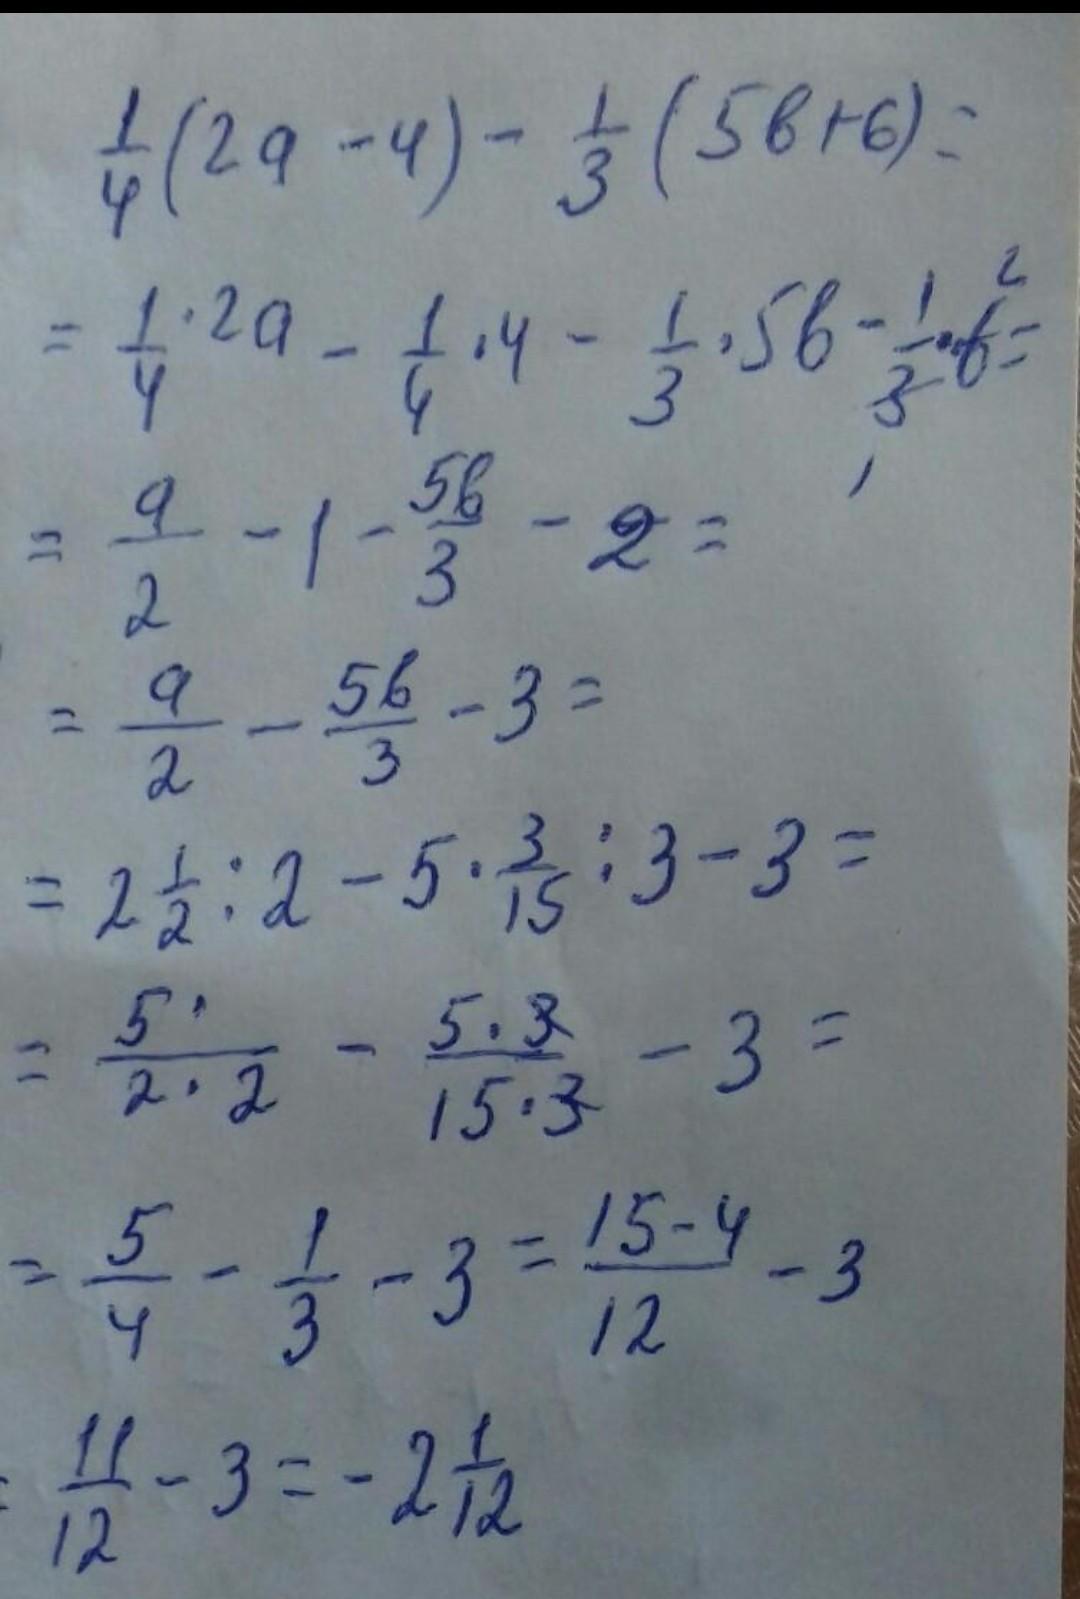 1/4(2a - 4) - 1/3(5b+6) =
= 1/4 · 2a - 1/4 · 4 - 1/3 · 5b - 1/3 · 6 = 2 1
= a/2 - 1 - 5b/3 - 2 =
= a/2 - 5b/3 - 3 =
= 2 1/2 : 2 - 5 · 3/15 : 3 - 3 =
= 5·/2·2 - 5·3/15·3 - 3 =
= 5/4 - 1/3 - 3 = 15-4/12 - 3
= 11/12 - 3 = - 2 1/12